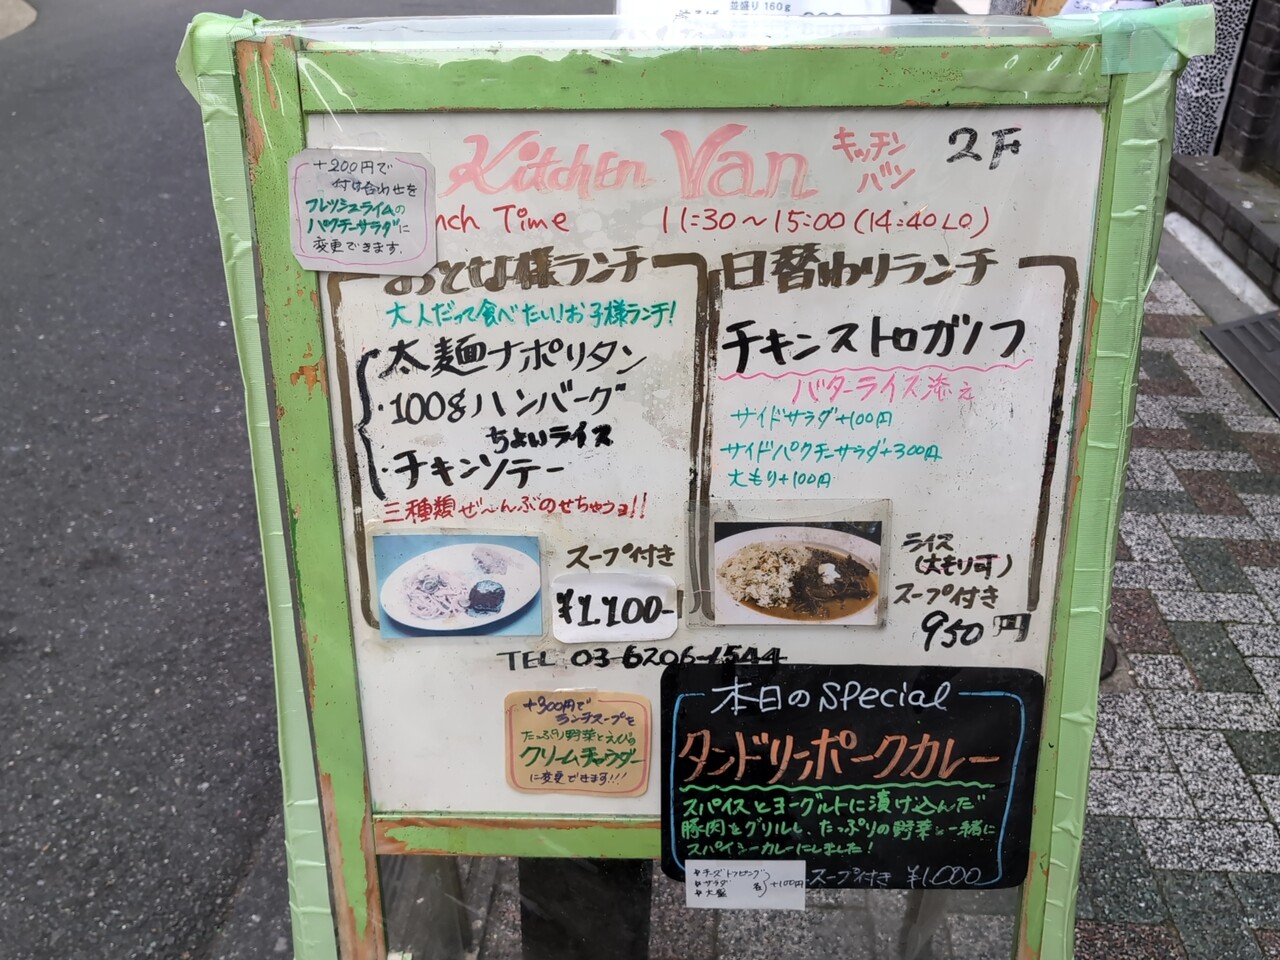 並盛り 160g
Kitchen Van キッチンバン 2F
+200円で
付け合わせを
フレッシュライムの
パクチーサラダに
変更できます.
nch Time 11:30～15:00 (14:40 LO)
おとな様ランチ
大人だって食べたい!お子様ランチ!
太麺ナポリタン
・100gハンバーグ
ちょいライス
・チキンソテー
三種類ぜ～んぶのせちゃうョ!!
スープ付き
¥1.100-
日替わりランチ
チキンストロガノフ
バターライス添え
サイドサラダ+100円
サイドパクチーサラダ+300円
大もり+100円
ライス
(大もり可)
スープ付き
950円
TEL 03-6206-1544
+300円で
ランチスープを
たっぷり野菜とえびの
クリームチャウダー
に変更できます!!!
本日のSpecial
タンドリーポークカレー
スパイスとヨーグルトに漬け込んだ
豚肉をグリルし、たっぷりの野菜と一緒に
スパイシーカレーにしました!
スープ付き ¥1.000
*チーズトッピング
*サラダ
*大盛
各 +100円